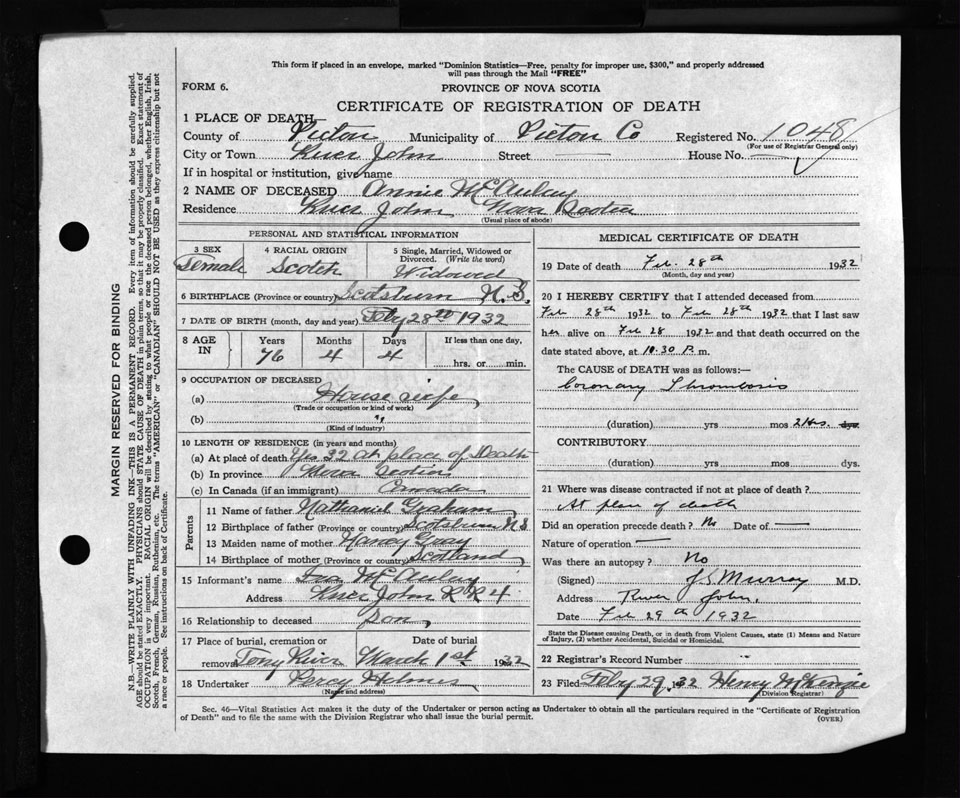 This form if placed in an envelope, marked "Dominion Statistics—Free, penalty for improper use, $300," and properly addressed
will pass through the Mail "FREE"
FORM 6. PROVINCE OF NOVA SCOTIA
CERTIFICATE OF REGISTRATION OF DEATH
1 PLACE OF DEATH—
County of Pictou Municipality of Pictou Co Registered No. 1048
(For use of Registrar General only)
City or Town River John Street — House No. —
If in hospital or institution, give name
2 NAME OF DECEASED Annie McAulay
Residence River John Nova Scotia
(Usual place of abode)
PERSONAL AND STATISTICAL INFORMATION
3 SEX 4 RACIAL ORIGIN 5 Single, Married, Widowed or
Divorced. (Write the word)
Female Scotch Widowed
6 BIRTHPLACE (Province or country) Scotsburn N.S.
7 DATE OF BIRTH (month, day and year) Feby 28th 1932
8 AGE IN Years Months Days If less than one day,
76 4 4 hrs. or min.
9 OCCUPATION OF DECEASED
(a) House wife
(Trade or occupation or kind of work)
(b) "
(Kind of industry)
10 LENGTH OF RESIDENCE (in years and months)
(a) At place of death Yrs 32 at place of Death
(b) In province Nova Scotia
(c) In Canada (if an immigrant) Canada
Parents
11 Name of father Nathaniel Graham
12 Birthplace of father (Province or country) Scotsburn N.S
13 Maiden name of mother Nancy Gray
14 Birthplace of mother (Province or country) Scotland
15 Informant's name McAulay
Address River John R R 4
16 Relationship to deceased Son
17 Place of burial, cremation or Date of burial
removal Tony River March 1st 1932
18 Undertaker Percy Holmes
(Name and address)
MEDICAL CERTIFICATE OF DEATH
19 Date of death Feb. 28th 1932
(Month, day and year)
20 I HEREBY CERTIFY that I attended deceased from
Feb 28th 1932 to Feb 28th 1932 that I last saw
her alive on Feb 28 1932 and that death occurred on the
date stated above, at 10.30 P. m.
The CAUSE of DEATH was as follows:—
Coronary Thrombosis
(duration) yrs mos 2 Hrs. dys.
CONTRIBUTORY
(duration) yrs mos dys.
21 Where was disease contracted if not at place of death?
At place of death
Did an operation precede death? No Date of —
Nature of operation —
Was there an autopsy? No
(Signed) J S Murray M.D.
Address River John.
Date Feb 29th 1932
State the Disease causing Death, or in death from Violent Causes, state (1) Means and Nature
of Injury, (2) whether Accidental, Suicidal or Homicidal.
22 Registrar's Record Number
23 Filed Feby 29 32 Henry McKenzie
(Division Registrar)
Sec. 46—Vital Statistics Act makes it the duty of the Undertaker or person acting as Undertaker to obtain all the particulars required in the "Certificate of Registration
of Death" and to file the same with the Division Registrar who shall issue the burial permit.
(OVER)
MARGIN RESERVED FOR BINDING
N.B.—WRITE PLAINLY WITH UNFADING INK—THIS IS A PERMANENT RECORD. Every item of information should be carefully supplied.
AGE should be stated EXACTLY. PHYSICIANS should STATE CAUSE OF DEATH in plain terms, so that it may be properly classified. Exact statement of
OCCUPATION is very important. RACIAL ORIGIN will be described by stating to what people or race the deceased person belonged, whether English, Irish,
Scotch, French, German, Russian, Ruthenian, etc. The terms "AMERICAN" or "CANADIAN" SHOULD NOT BE USED as they express citizenship but not
a race or people. See instructions on back of Certificate.